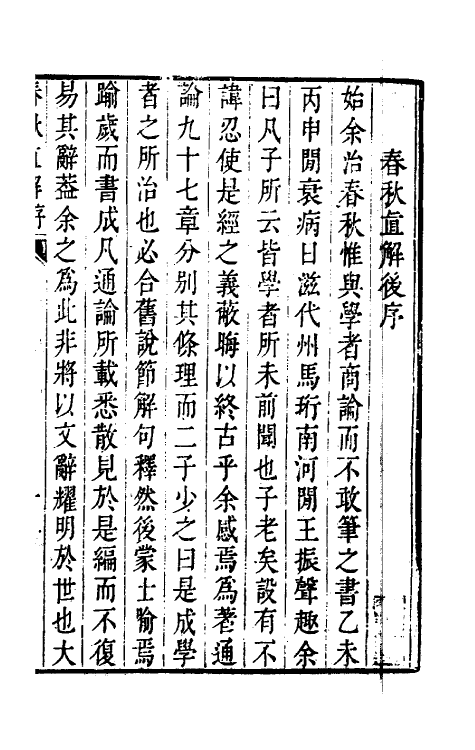 春秋直解後序
始余治春秋惟與學者商論而不敢筆之書乙未
丙申閒衰病日滋代州馬珩南河閒王振聲趣余
曰凡子所云皆學者所未前聞也子老矣設有不
諱忍使是經之義蔽晦以終古乎余感焉為著通
論九十七章分別其條理而二子少之曰是成學
者之所治也必合舊說節解句釋然後蒙士喻焉
踰歲而書成凡通論所載悉散見於是編而不復
易其辭葢余之為此非將以文辭耀明於世也大
春秋直解序
一